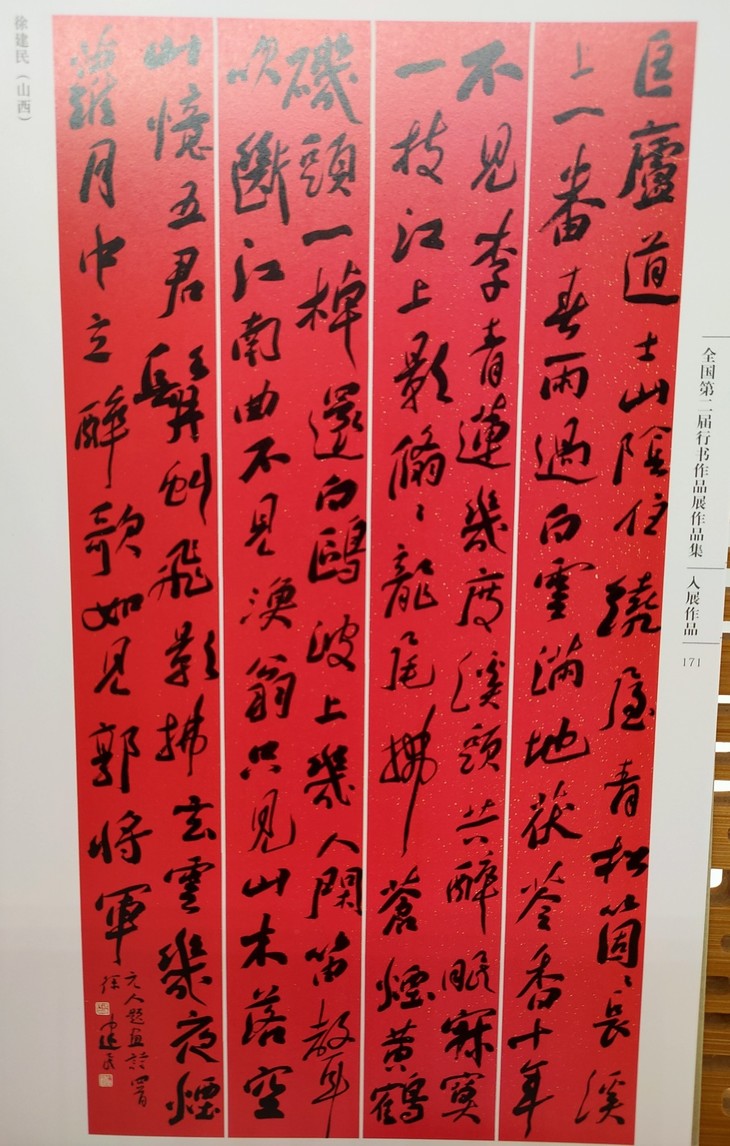 全国第二届行书作品展作品集
入展作品
171
匡廬道士山陰住繞屋青松箇〻長溪
上一番春雨過白雲滿地茯苓香十年
不見李青蓮幾度溪頭共醉眠寂寞
一枝江上影翛〻龍尾拂蒼煙黃鶴
磯頭一棹還白鷗波上幾人閑笛聲
吹斷江南曲不見漁翁只見山木落空
山憶五君髯虯飛影拂玄雲幾夜煙
蘿月中立醉歌如見郭將軍
元人題畫詩四首
徐建民
徐建民（山西）